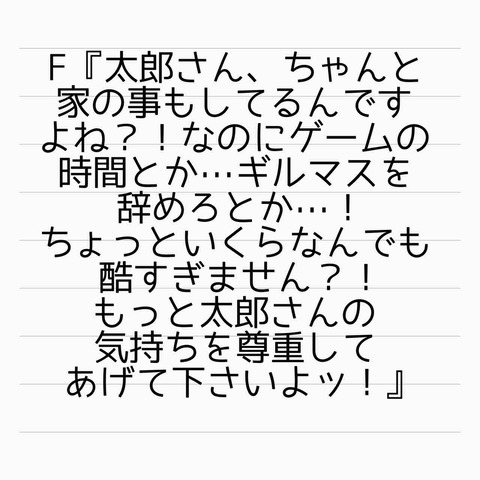 F『太郎さん、ちゃんと
家の事もしてるんです
よね？！なのにゲームの
時間とか…ギルマスを
辞めろとか…！
ちょっといくらなんでも
酷すぎません？！
もっと太郎さんの
気持ちを尊重して
あげて下さいよッ！』